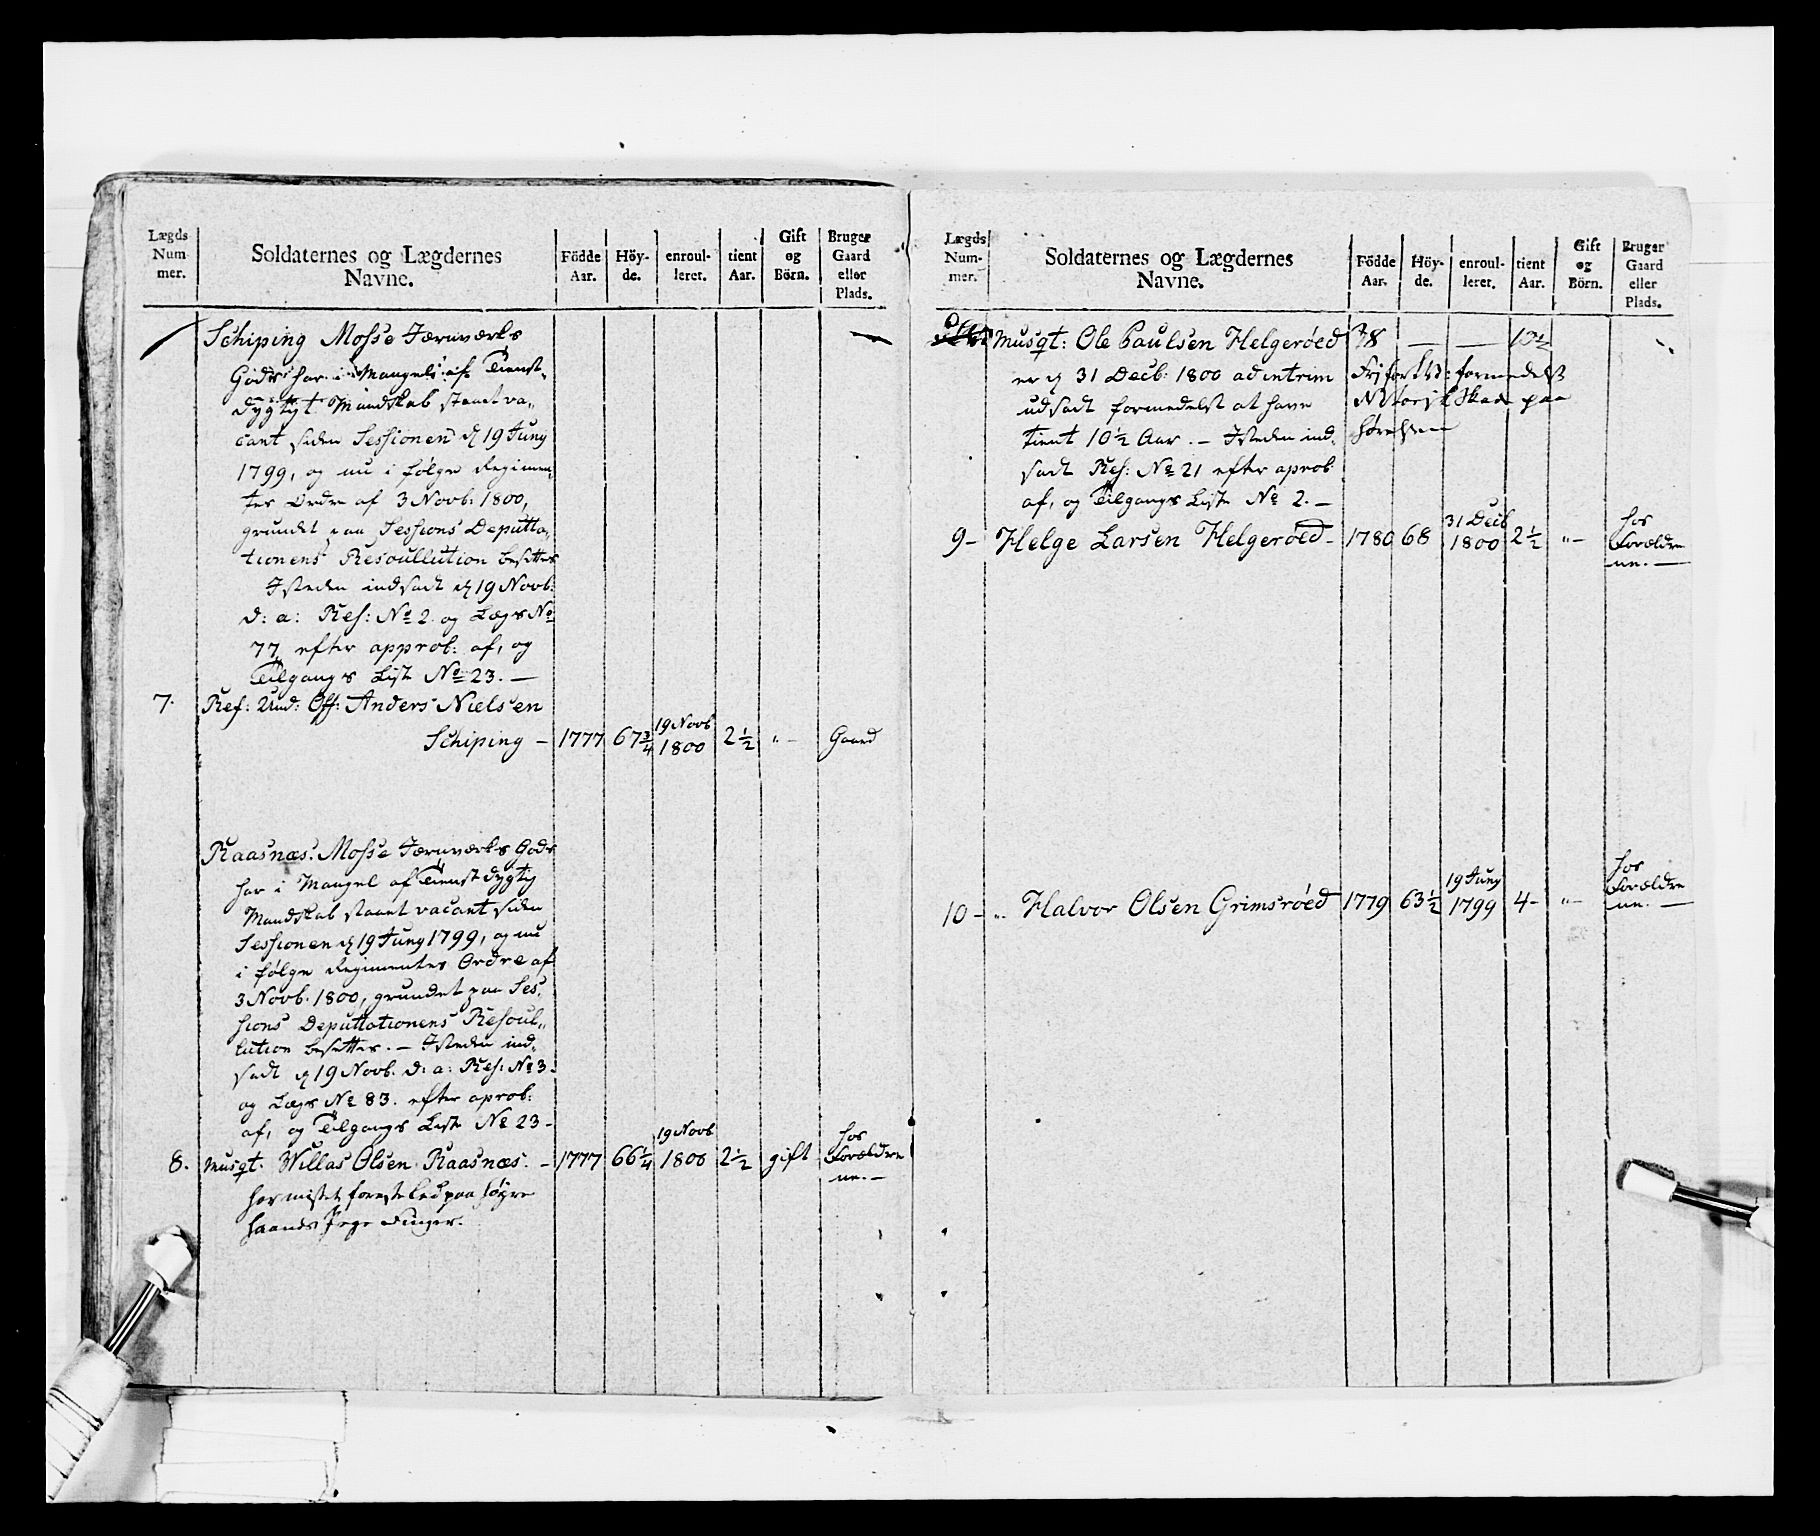 Lægds Num- mer.
Soldaternes og Lægdernes Navne.
Födde Aar.
Höy- de.
enroul- leret.
tient Aar.
Gift og Börn.
Bruger Gaard eller Plads.
Schiping Mosse Jernværks
Gods har i Mangel af Tienst-
dygtigt Mandskab staaet va„
cant siden Sessionen d 19 Juny
1799, og nu i følge Regimen„
tes Ordre af 3 Novb. 1800,
grundet paa Sessions Deputta„
tionens Resoullution besettes
Isteden indsadt d 19 Novb:
d: a: Res: No 2. og Lægs No
77, efter approb: af, og
Tilgangs List No 23. —
7. Ref: Und: Off: Anders Nielsen
Schiping - 1777 67¾ 19 Novb 1800 2½ „- Gaard
Raasnæs. Mosse Jernværks Gods
har i Mangel af Tienstdygtig
Mandskab staaet vacant siden
Sessionen d 19 Juny 1799, og nu
i følge Regimentes Ordre af
3 Novb. 1800, grundet paa Ses„
sions Deputtationens Resoul„
lution besettes. — Isteden ind„
sadt d 19 Novb. d: a: Res: No 3.
og Lægs No 83. efter aprob:
af, og Tilgangs Liste No 23-
8. Musqt. Willas Olsen Raasnæs. - 1777 66¼ 19 Novb 1800 2½ gift hos Forældre ne. —
har mistet forreste Led paa høyre
haands Pege Finger.
Lægds Num- mer.
Soldaternes og Lægdernes Navne.
Födde Aar.
Höy- de.
enroul- leret.
tient Aar.
Gift og Börn.
Bruger Gaard eller Plads.
Musqt: Ole Paulsen Helgerøed — — 10½
er d 31 Decb: 1800 ad intrim
udsadt formedelst at have
tient 10½ Aar. — Isteden ind„
sadt Res: No 21 efter aprob:
af, og Tilgangs Liste No 2. —
formedelst
Skade paa
hørelsen
9- Helge Larsen Helgerøed- 1780 68 31 Decb 1800 2½ „- hos Forældre ne. —
10- „ Halvor Olsen Grimsrøed 1779 63½ 19 Juny 1799 4- „- hos Forældre ne. —